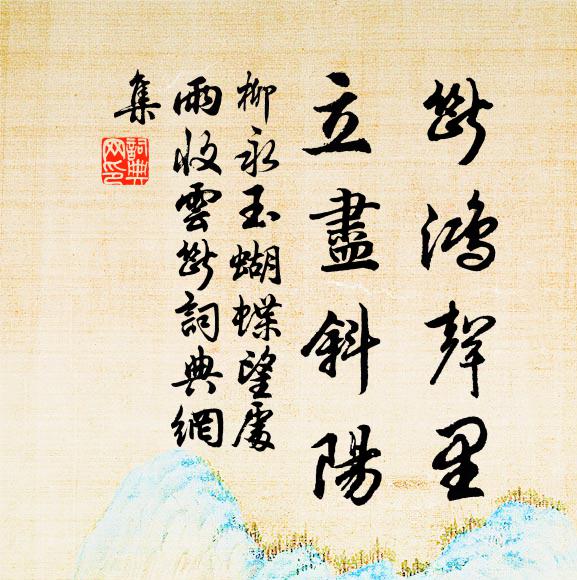 断鸿聲里
立盡斜陽
柳永玉蝴蝶望處
雨收雲断詞典網
集
詞典網印